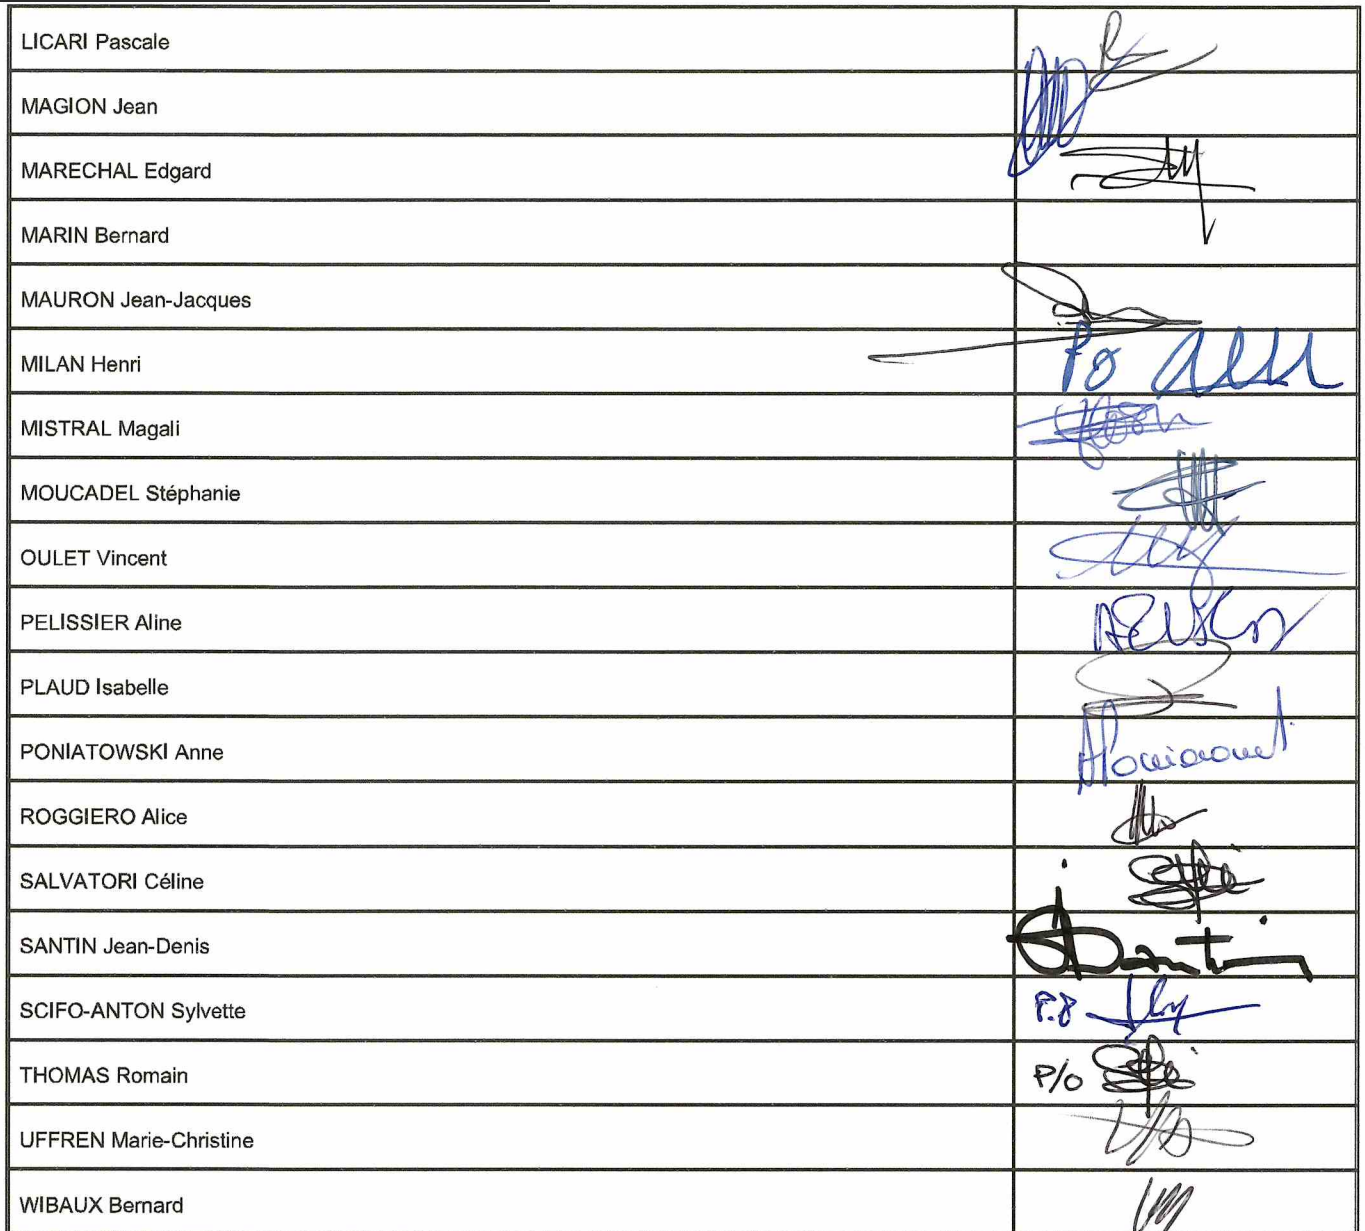 LICARI Pascale
MAGION Jean
MARECHAL Edgard
MARIN Bernard
MAURON Jean-Jacques
MILAN Henri
Po
MISTRAL Magali
MOUCADEL Stéphanie
OULET Vincent
PELISSIER Aline
PLAUD Isabelle
PONIATOWSKI Anne
ROGGIERO Alice
SALVATORI Céline
SANTIN Jean-Denis
SCIFO-ANTON Sylvette
THOMAS Romain
P/o
UFFREN Marie-Christine
WIBAUX Bernard